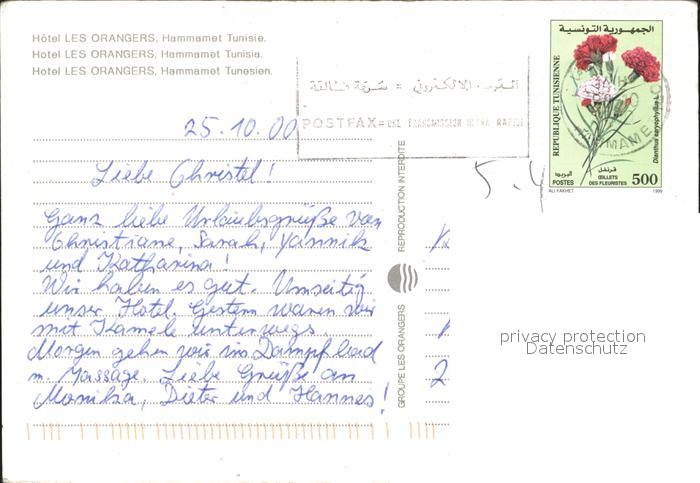 Hôtel LES ORANGERS, Hammamet Tunisie.
Hotel LES ORANGERS, Hammamet Tunisia.
Hotel LES ORANGERS, Hammamet Tunesien.
25.10.00
Liebe Christel!
Ganz liebe Urlaubsgrüße von
Christiane, Sarah, Yannik
und Katharina!
Wir haben es gut. Umseitig
unser Hotel. Gestern waren wir
mit Kamele unterwegs.
Morgen gehen wir ins Dampfbad
m. Massage. Liebe Grüße an
Monika, Dieter und Hannes!
REPRODUCTION INTERDITE
GROUPE LES ORANGERS
POSTFAX=UNE TRANSMISSION ULTRA RAPIDE
الجمهورية التونسية
REPUBLIQUE TUNISIENNE
Dianthus caryophyllus L.
البريد
قرنفل
POSTES
ŒILLETS
DES FLEURISTES
500
ALI FAKHET
1999
privacy protection
Datenschutz